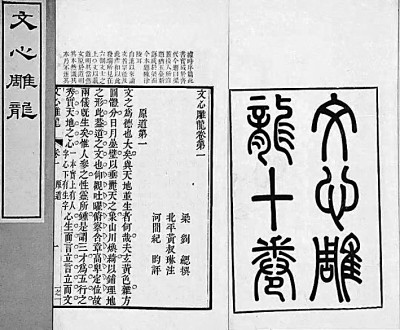 文心雕
龍十卷
文心雕龍卷第一
梁劉勰撰
北平黃叔琳注
河間紀昀評
原道第一
文之為德也大矣與天地並生者何哉夫玄黃色雜方
圓體分日月疊璧以垂麗天之象山川煥綺以鋪理地
之形此蓋道之文也仰觀吐曜俯察含章高卑定位故
兩儀既生矣惟人參之性靈所鍾是謂三才為五行之
秀實天地之心一本實上有人字心下有生字心生而言立言立而文
文心雕龍 卷一 原道
文心雕龍